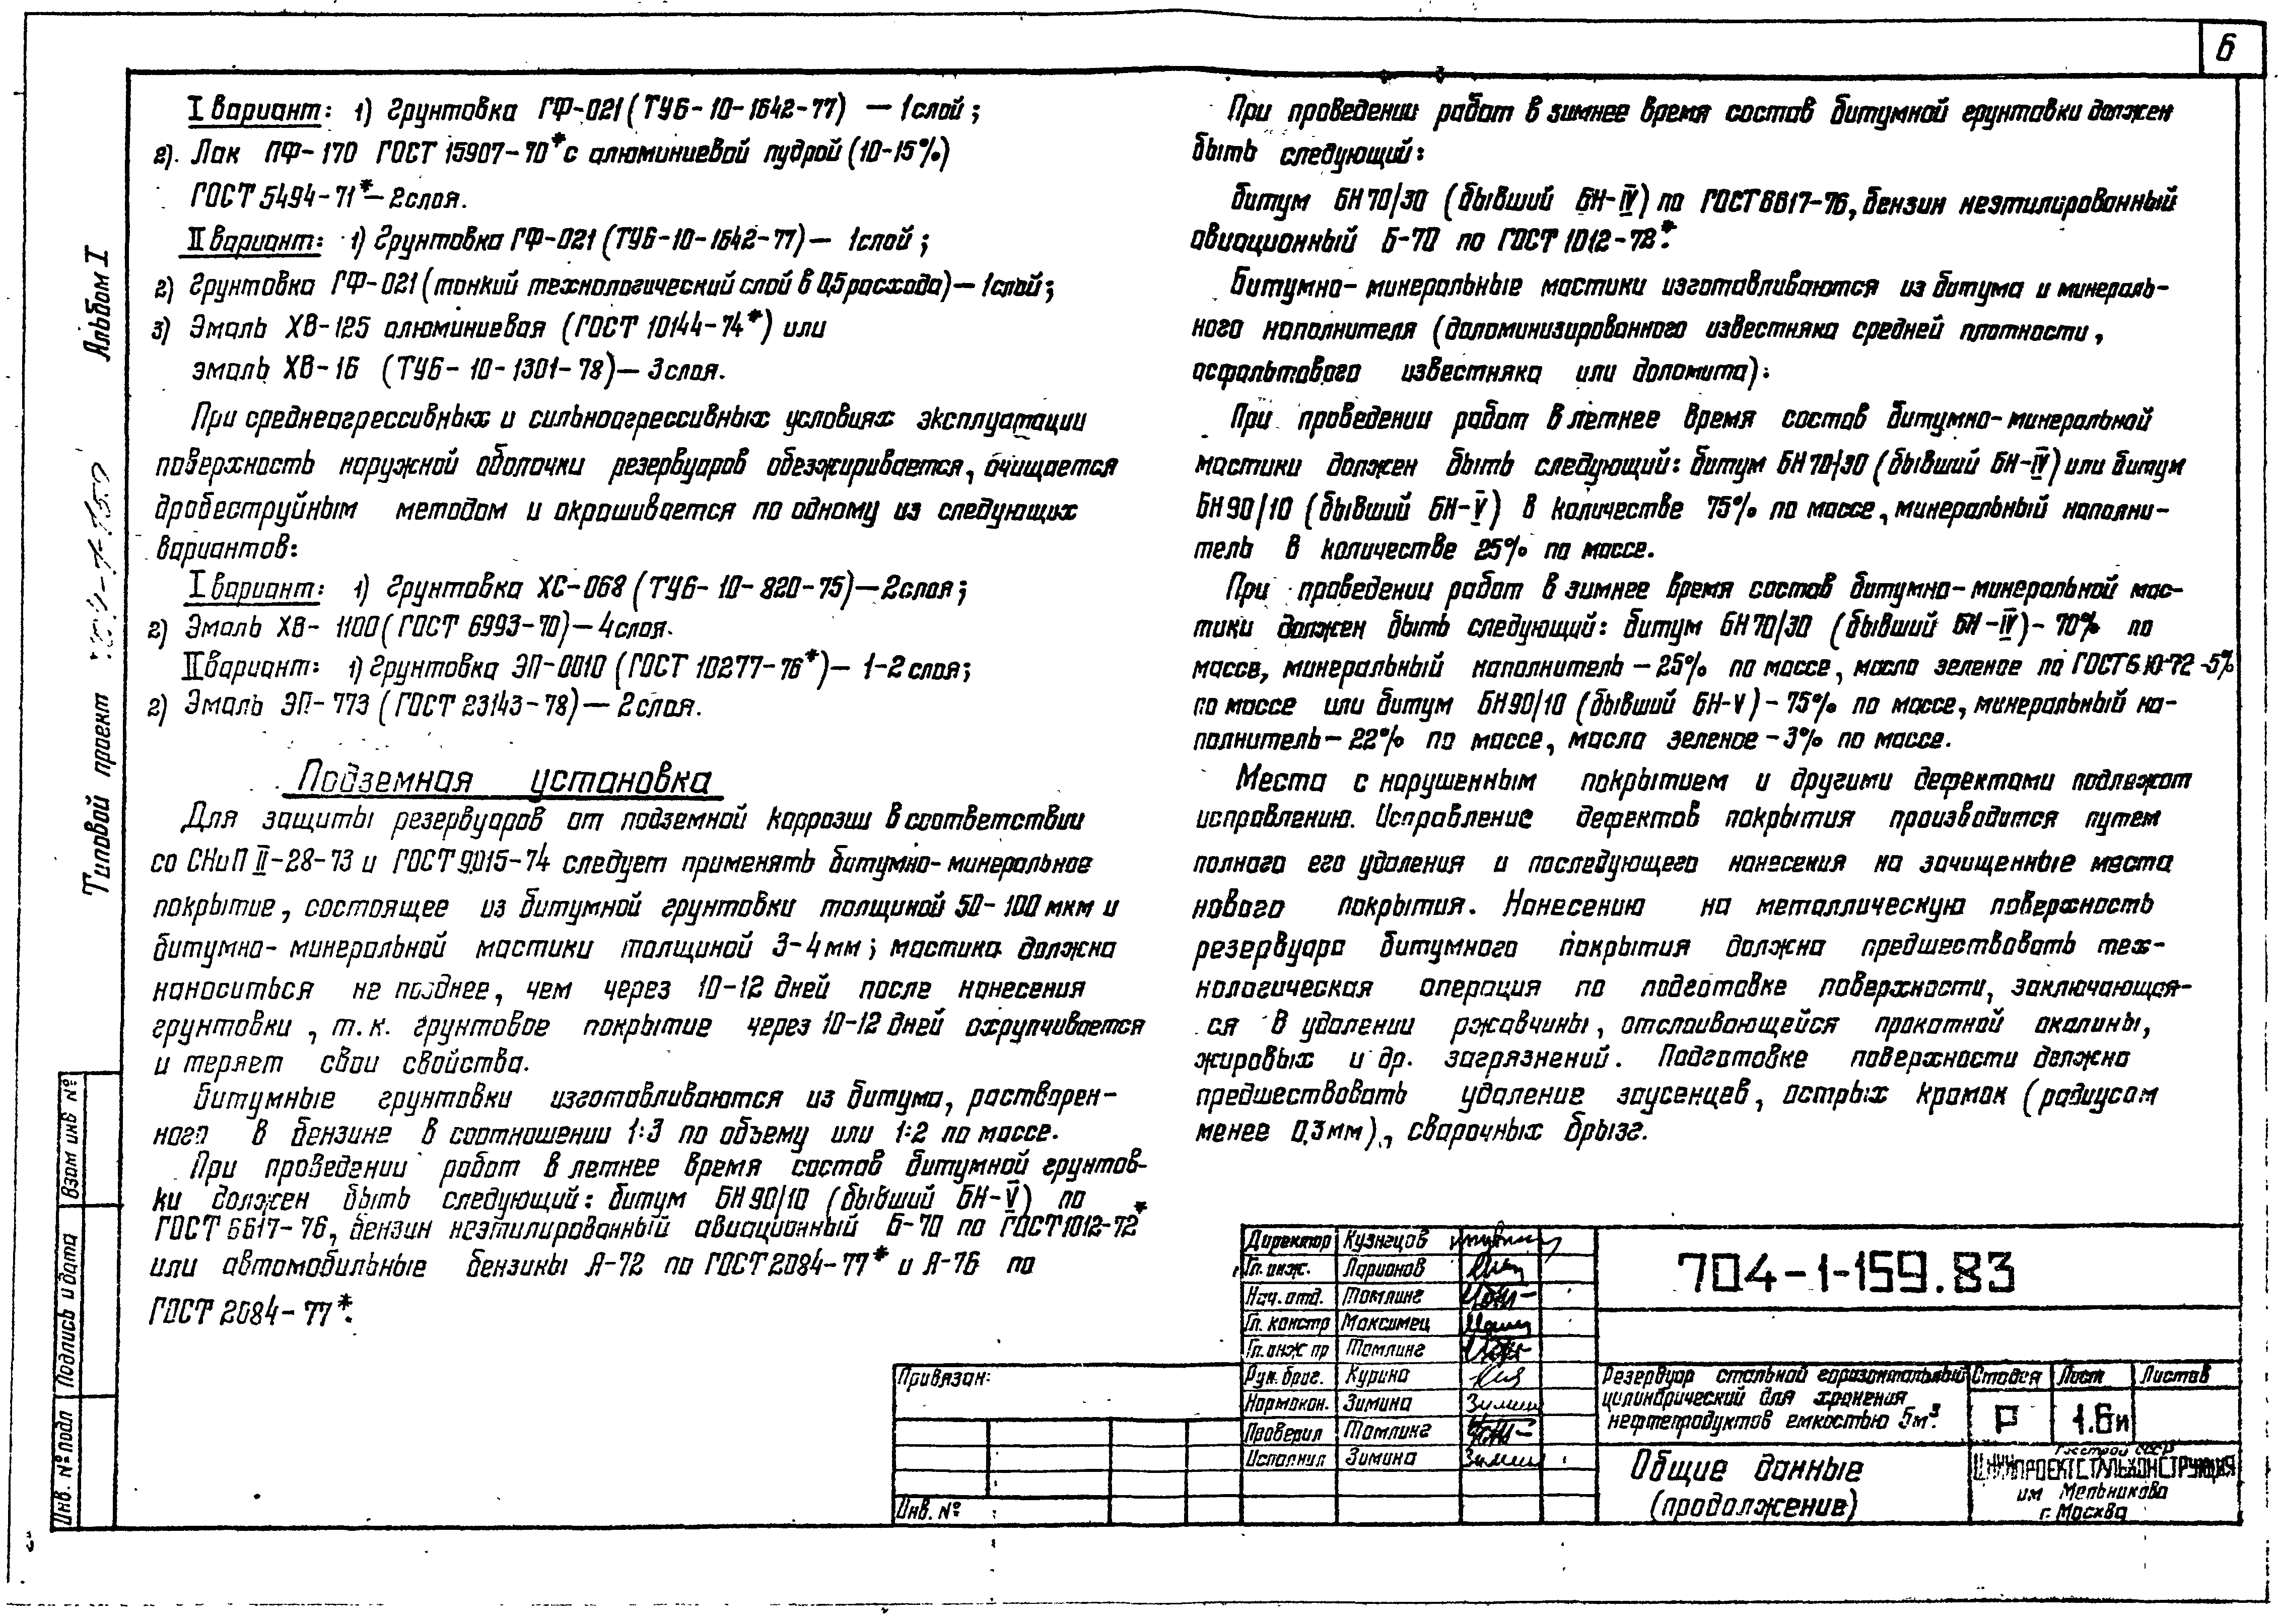 6
I вариант: 1) Грунтовка ГФ-021 (ТУ6-10-1642-77) — 1слой;
2). Лак ПФ-170 ГОСТ 15907-70* с алюминиевой пудрой (10-15%)
ГОСТ 5494-71* — 2слоя.
II вариант: 1) Грунтовка ГФ-021 (ТУ6-10-1642-77) — 1слой;
2) Грунтовка ГФ-021 (тонкий технологический слой в 0,5 расхода) — 1слой;
3) Эмаль ХВ-125 алюминиевая (ГОСТ 10144-74*) или
эмаль ХВ-16 (ТУ6-10-1301-78) — 3слоя.
При среднеагрессивных и сильноагрессивных условиях эксплуатации
поверхность наружной оболочки резервуаров обезжиривается, очищается
дробеструйным методом и окрашивается по одному из следующих
вариантов:
I вариант: 1) Грунтовка ХС-068 (ТУ6-10-820-75) — 2слоя;
2) Эмаль ХВ-1100 (ГОСТ 6993-70) — 4слоя.
II вариант: 1) Грунтовка ЭП-0010 (ГОСТ 10277-76*) — 1-2 слоя;
2) Эмаль ЭП-773 (ГОСТ 23143-78) — 2слоя.
Подземная установка
Для защиты резервуаров от подземной коррозии в соответствии
со СНиП II-28-73 и ГОСТ 9.015-74 следует применять битумно-минеральное
покрытие, состоящее из битумной грунтовки толщиной 50-100 мкм и
битумно-минеральной мастики толщиной 3-4 мм; мастика должна
наноситься не позднее, чем через 10-12 дней после нанесения
грунтовки, т.к. грунтовое покрытие через 10-12 дней охрупчивается
и теряет свои свойства.
Битумные грунтовки изготавливаются из битума, растворен-
ного в бензине в соотношении 1:3 по объему или 1:2 по массе.
При проведении работ в летнее время состав битумной грунтов-
ки должен быть следующий: битум БН 90/10 (бывший БН-V) по
ГОСТ 6617-76, бензин неэтилированный авиационный Б-70 по ГОСТ 1012-72*
или автомобильные бензины А-72 по ГОСТ 2084-77* и А-76 по
ГОСТ 2084-77*.
При проведении работ в зимнее время состав битумной грунтовки должен
быть следующий:
битум БН 70/30 (бывший БН-IV) по ГОСТ 6617-76, бензин неэтилированный
авиационный Б-70 по ГОСТ 1012-72*.
Битумно-минеральные мастики изготавливаются из битума и минераль-
ного наполнителя (доломинизированного известняка средней плотности,
асфальтового известняка или доломита):
При проведении работ в летнее время состав битумно-минеральной
мастики должен быть следующий: битум БН 70/30 (бывший БН-IV) или битум
БН 90/10 (бывший БН-V) в количестве 75% по массе, минеральный наполни-
тель в количестве 25% по массе.
При проведении работ в зимнее время состав битумно-минеральной мас-
тики должен быть следующий: битум БН 70/30 (бывший БН-IV) - 70% по
массе, минеральный наполнитель — 25% по массе, масло зеленое по -5%
по массе или битум БН 90/10 (бывший БН-V) - 75% по массе, минеральный на-
полнитель - 22% по массе, масла зеленое - 3% по массе.
Места с нарушенным покрытием и другими дефектами подлежат
исправлению. Исправление дефектов покрытия производится путем
полного его удаления и последующего нанесения на зачищенные места
нового покрытия. Нанесению на металлическую поверхность
резервуара битумного покрытия должна предшествовать тех-
нологическая операция по подготовке поверхности, заключающая-
ся в удалении ржавчины, отслаивающейся прокатной окалины,
жировых и др. загрязнений. Подготовке поверхности должно
предшествовать удаление заусенцев, острых кромок (радиусом
менее 0,3 мм), сварочных брызг.
Альбом I
Типовой проект
Взам инв №
Подпись и дата
Инв. № подл
Привязан:
Инв. №
Директор Кузнецов
Гл. инж. Ларионов
Нач. отд. Томлинг
Гл. констр Максимец
Гл. инж пр Томлинг
Рук. бриг. Курина
Нормокон. Зимина
Проверил Томлинг
Исполнил Зимина
704-1-159.83
Резервуар стальной горизонтальный
цилиндрический для хранения
нефтепродуктов емкостью 5м³.
Стадия Лист Листов
Р 1.6и
Общие данные
(продолжение)
Госстрой СССР
ЦНИИПРОЕКТСТАЛЬКОНСТРУКЦИЯ
им Мельникова
г. Москва